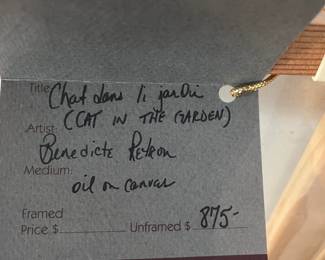 Title Chat dans li jardin
(CAT IN THE GARDEN)
Artist: Benedicte
Medium: oil on canvas
Framed
Price $ Unframed $ 875-